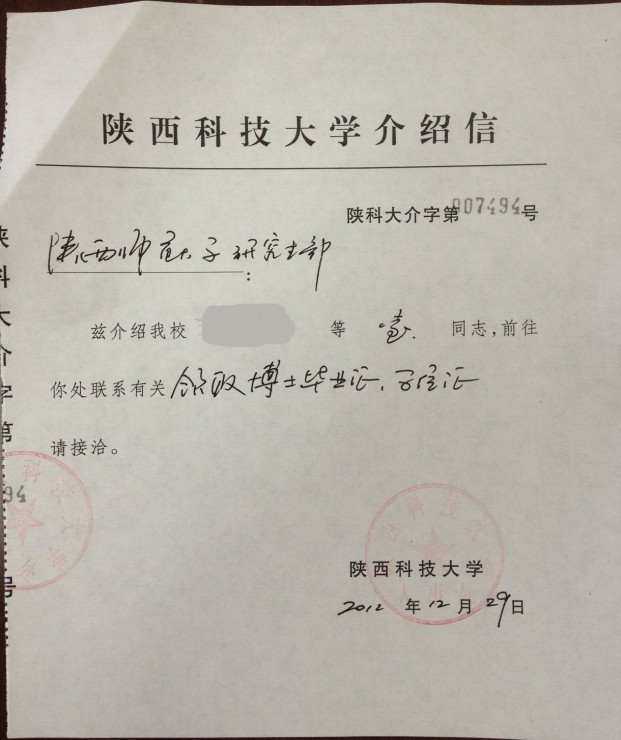 陕西科技大学介绍信
陕科大介字第007494号
陕西师范大学研究生部:
兹介绍我校 等 壹 同志,前往
你处联系有关领取博士毕业证、学位证
请接洽。
陕西科技大学
2012 年 12 月 29 日
陕科大介字第
94
号
科技大学
科技大